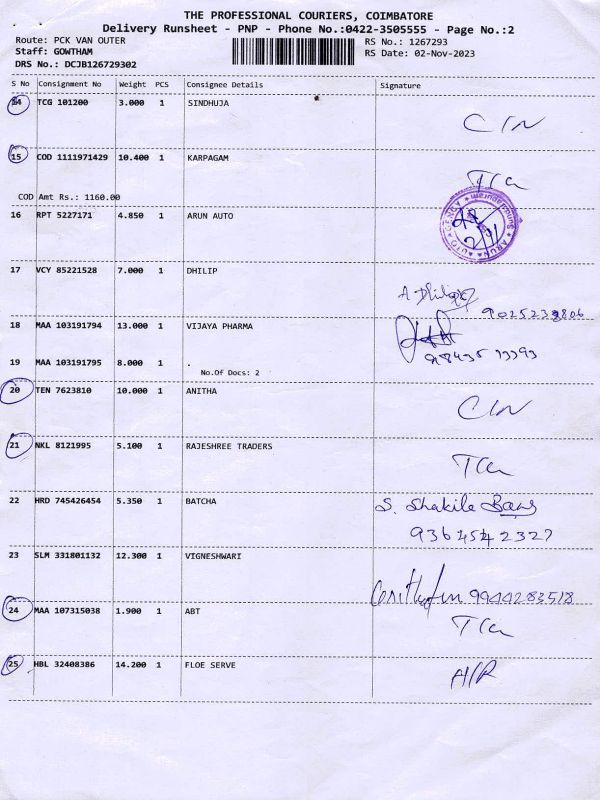 THE PROFESSIONAL COURIERS, COIMBATORE
Delivery Runsheet - PNP - Phone No.:0422-3505555 - Page No.:2
Route: PCK VAN OUTER RS No.: 1267293
Staff: GOWTHAM RS Date: 02-Nov-2023
DRS No.: DCJB126729302
S No Consignment No Weight PCS Consignee Details Signature
14 TCG 101200 3.000 1 SINDHUJA
C/N
15 COD 1111971429 10.400 1 KARPAGAM
COD Amt Rs.: 1160.00
16 RPT 5227171 4.850 1 ARUN AUTO
ARUN AUTO AGENCY
17 VCY 85221528 7.000 1 DHILIP
A Dhilip
18 MAA 103191794 13.000 1 VIJAYA PHARMA
19 MAA 103191795 8.000 1 .
No.Of Docs: 2
20 TEN 7623810 10.000 1 ANITHA
C/N
21 NKL 8121995 5.100 1 RAJESHREE TRADERS
22 HRD 745426454 5.350 1 BATCHA
S. Shakila Banu
23 SLM 331801132 12.300 1 VIGNESHWARI
9944283518
24 MAA 107315038 1.900 1 ABT
25 HBL 32408386 14.200 1 FLOE SERVE
A/R